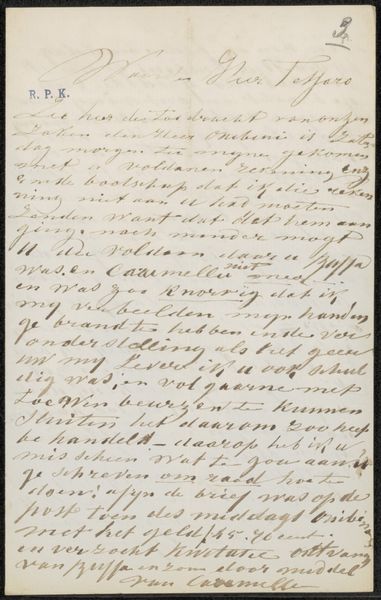 3
Waarde Heer Tessaro
R. P. K.
Zie hier de toedracht van onzen
zaken den Heer is Zater
dag morgen te mijne gekomen
met u voldanen
en de bootschap dat ik die reken
ning niet aan u had moeten
zenden want dat het hem aan
ging. noch minder mogt
u die voldoen daar u Buffa
was, en Caramelle niet
en was zoo knorrig dat ik
my verbeelden mijn handen
gebrandt te hebben in de ver
onderstelling als het geen
uw my Levert ik u ook schul
dig was, en volgaarne met
toe Uwen beurzen te kunnen
sluiten het daarom zoo heb
behandelt daarop heb ik u
misschien wat te gou aan u
geschreven om raad hoe te
doen; afijn de brief was op de
post toen des middags
met het geld ƒ 45-70 cent
en verzocht kwitatie ontvang
van Buffa en zon door middel
van Caramelle